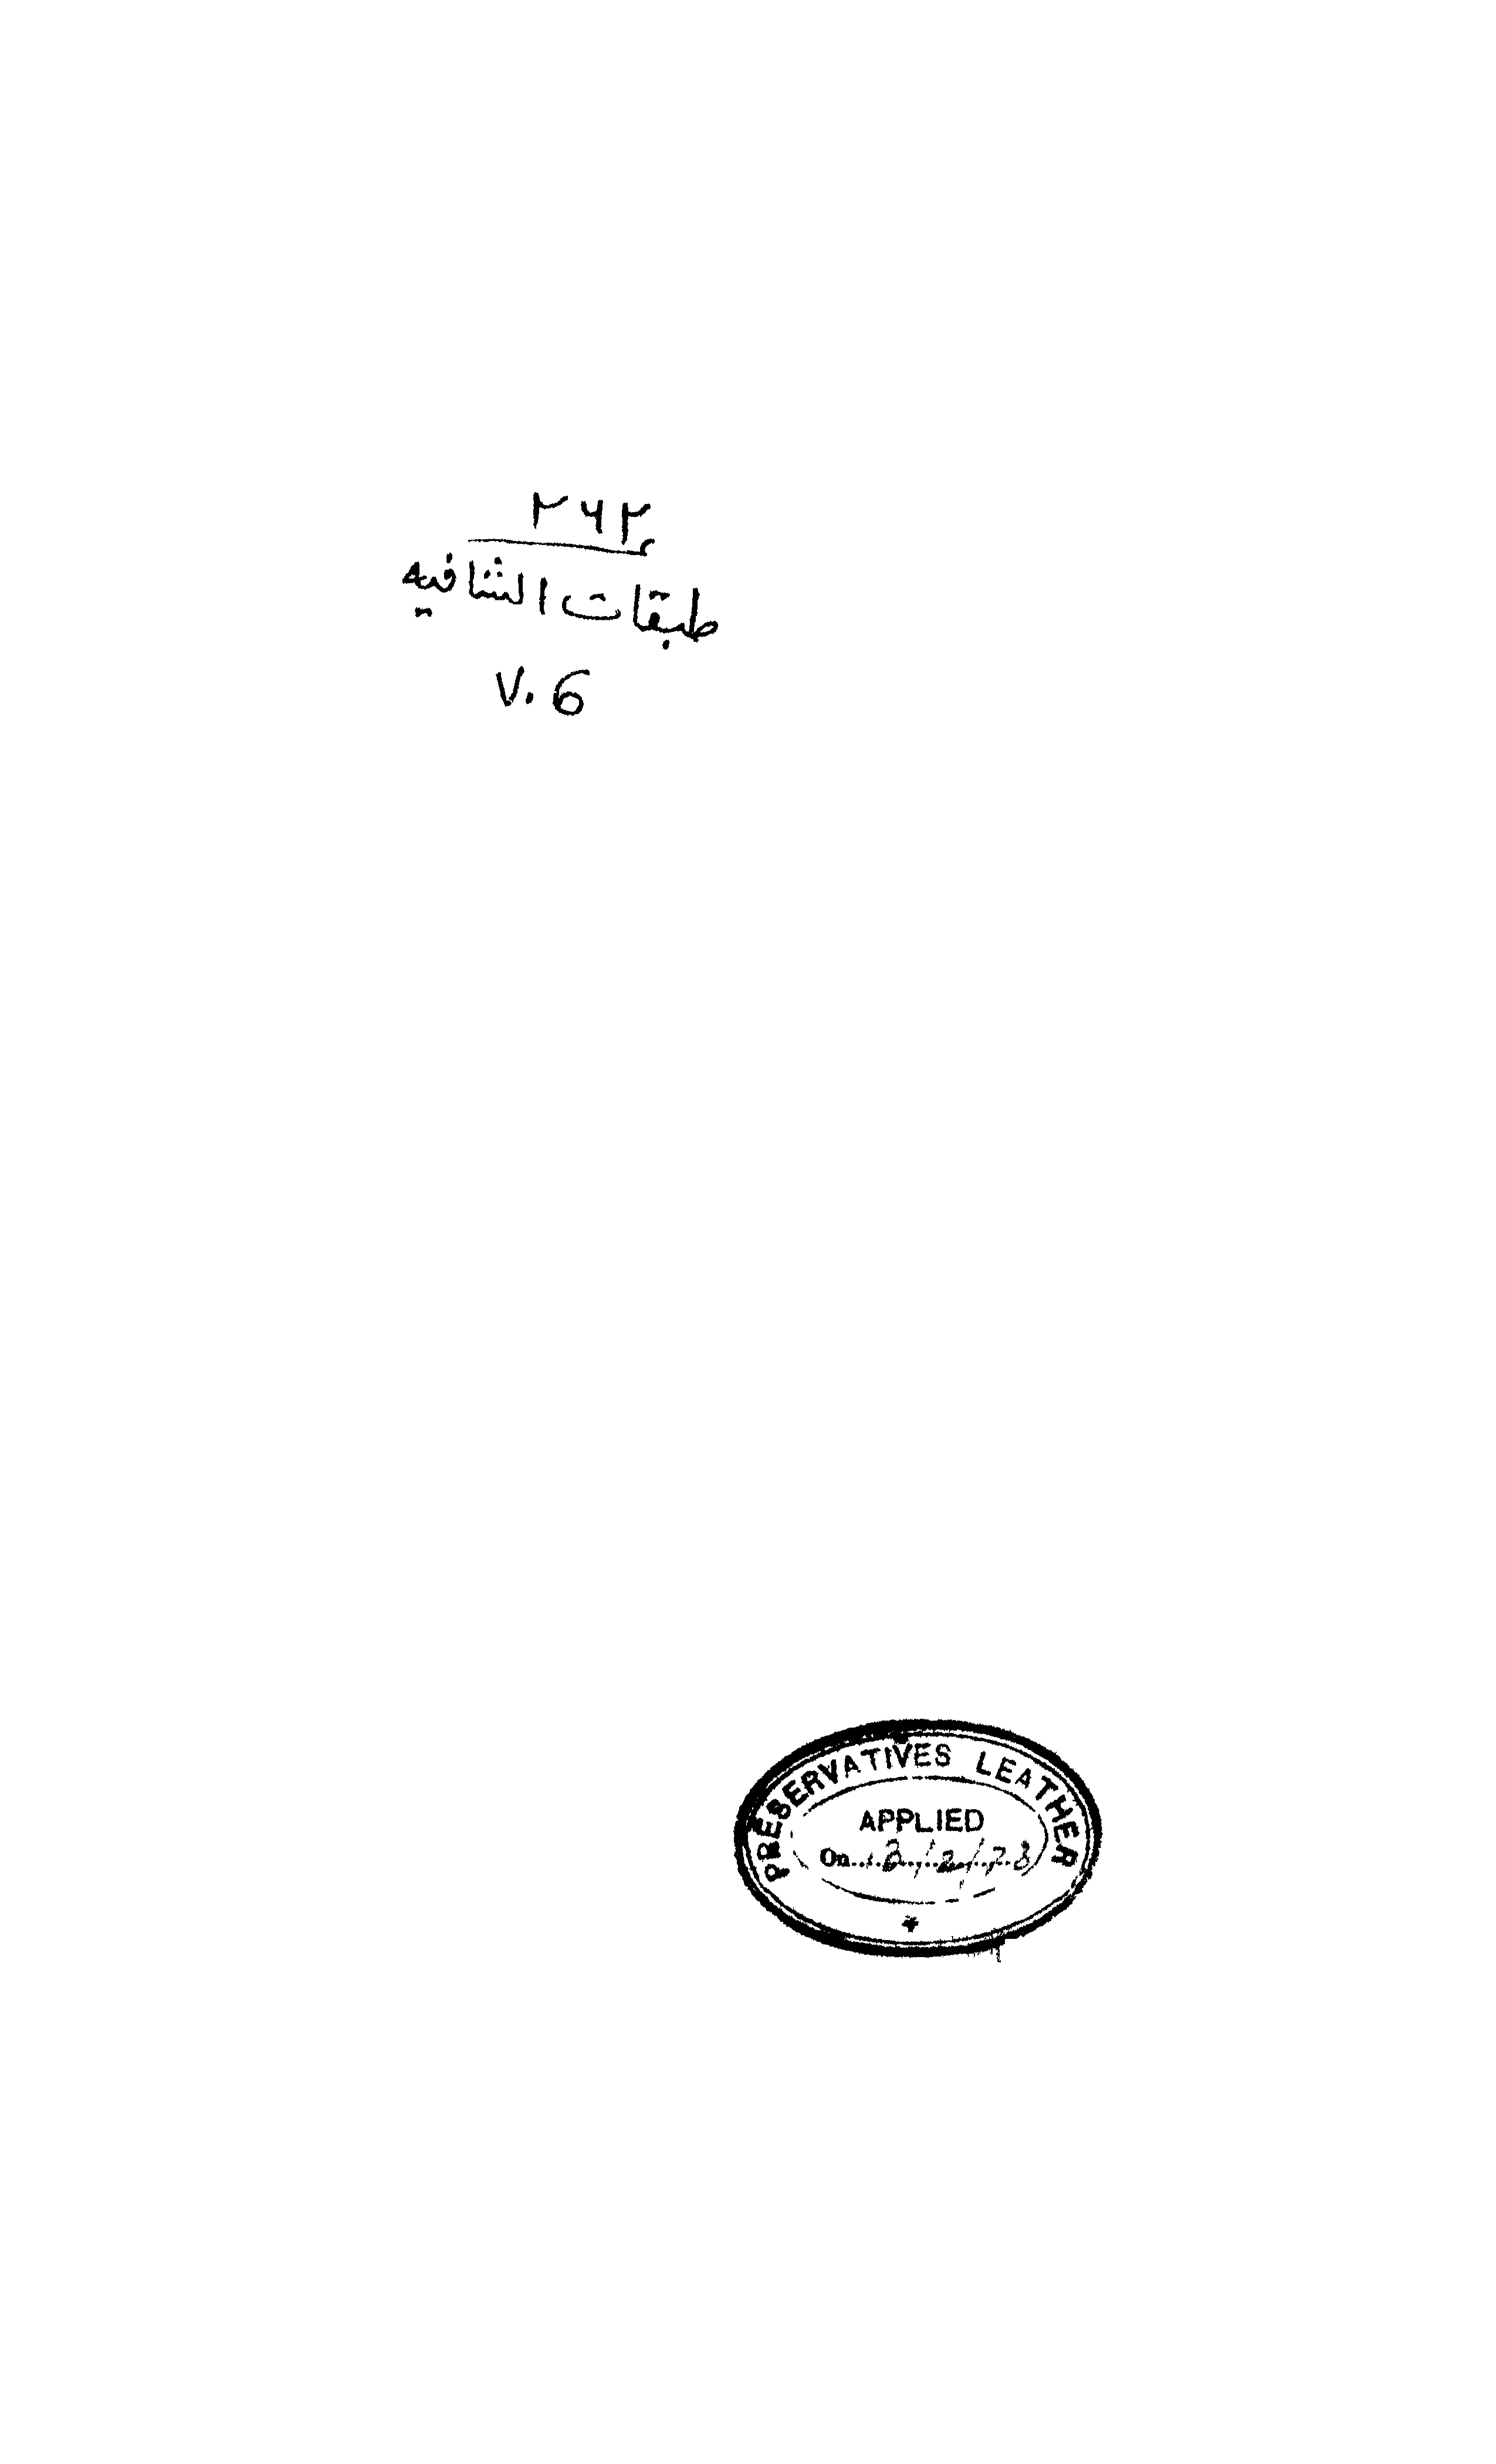 ۲۶۲
طبقات الشافيه
V. 6
PRESERVATIVES LEATHER
APPLIED
On 13/2/73